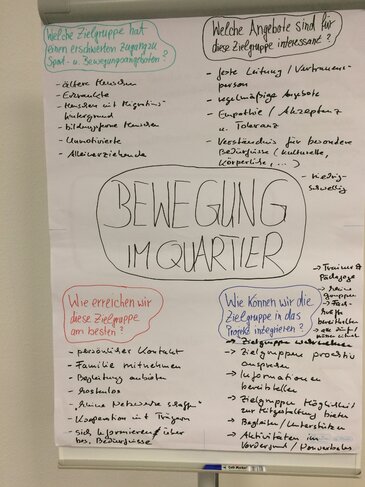 Welche Zielgruppe hat
einen erschwerten Zugang zu
Sport- u. Bewegungsangeboten?
- ältere Menschen
- Erkrankte
- Menschen mit Migrations-
hintergrund
- bildungsferne Menschen
- Unmotivierte
- Alleinerziehende
Welche Angebote sind für
diese Zielgruppe interessant?
- feste Leitung / Vertrauens-
person
- regelmäßige Angebote
- Empathie / Akzeptanz
u. Toleranz
- Verständnis für besondere
Bedürfnisse (kulturelle,
körperliche, ...)
- niedrig-
schwellig
BEWEGUNG
IM QUARTIER
Wie erreichen wir
diese Zielgruppe
am besten?
- persönlicher Kontakt
- Familie mitnehmen
- Begleitung anbieten
- kostenlos
- kleine Netzwerke schaffen
- Kooperation mit Trägern
- sich informieren über
bes. Bedürfnisse
Wie können wir die
Zielgruppe in das
Projekt integrieren?
→ Zielgruppe wahrnehmen
→ Zielgruppen proaktiv
ansprechen
→ Informationen
bereitstellen
→ Zielgruppen Möglichkeit
zur Mitgestaltung bieten
→ Begleiten / Unterstützen
→ Aktivitäten im
Vordergrund / Nonverbales
→ Trainer
Pädagoge
→ kleine
gruppen
bereitstellen